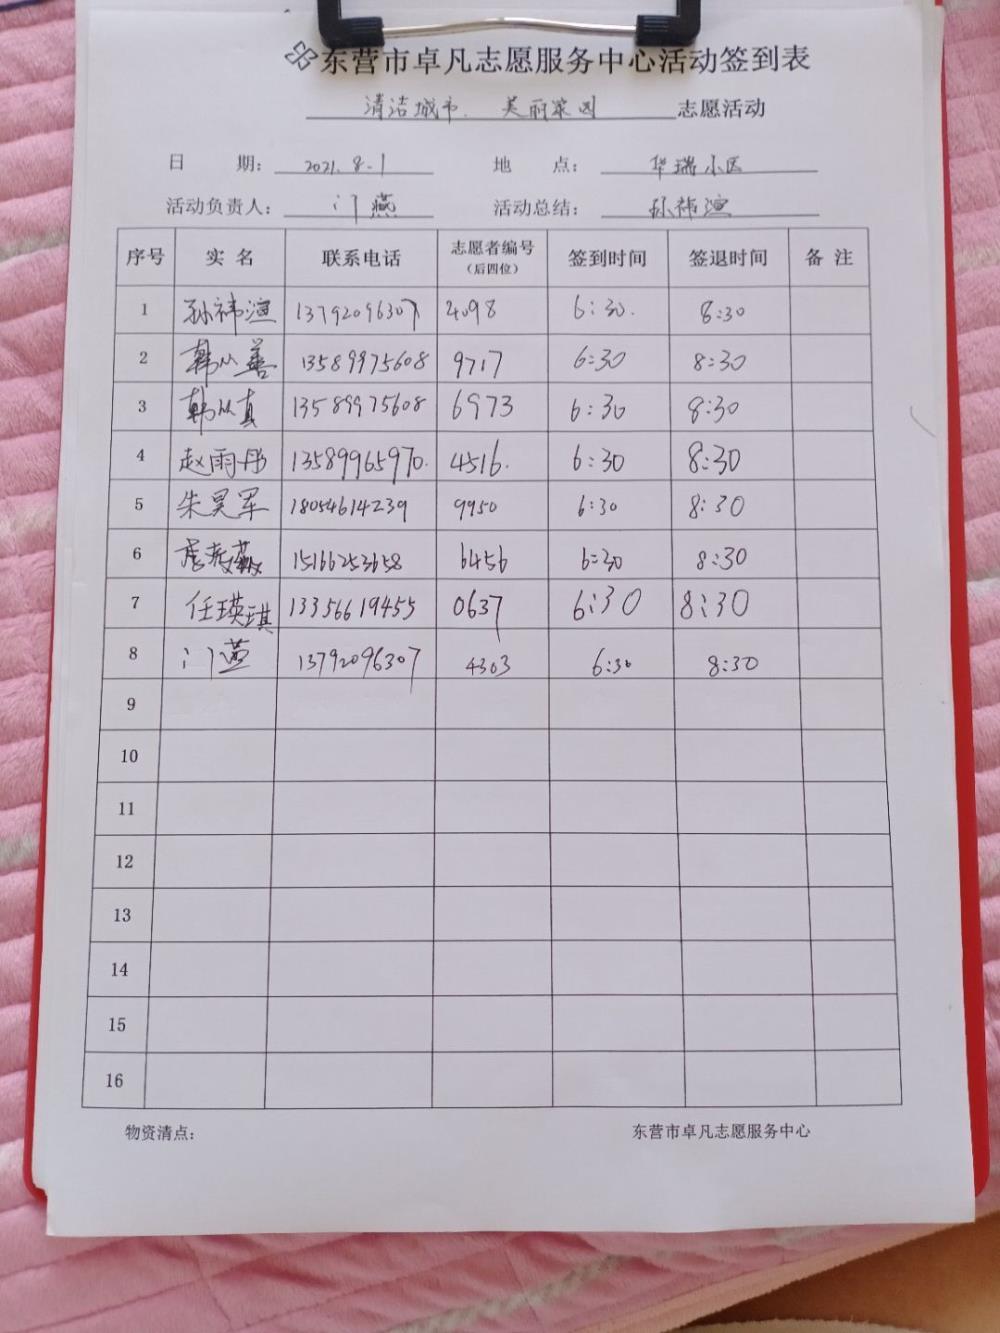 东营市卓凡志愿服务中心活动签到表
清洁城市. 美丽家园 志愿活动
日 期: 2021.8.1 地 点: 华瑞小区
活动负责人: 门燕 活动总结: 孙祎渲
序号 实名 联系电话 志愿者编号(后四位) 签到时间 签退时间 备注
1 孙祎渲 13792096307 2098 6:30. 8:30
2 韩从善 13589975608 9717 6:30 8:30
3 韩从真 13589975608 6973 6:30 8:30
4 赵雨彤 13589965970. 4516. 6:30 8:30
5 朱昊军 18054614239 9950 6:30 8:30
6 15166253658 6456 6:30 8:30
7 任瑛琪 13356619455 0637 6:30 8:30
8 门燕 13792096307 4303 6:30 8:30
9
10
11
12
13
14
15
16
物资清点: 东营市卓凡志愿服务中心